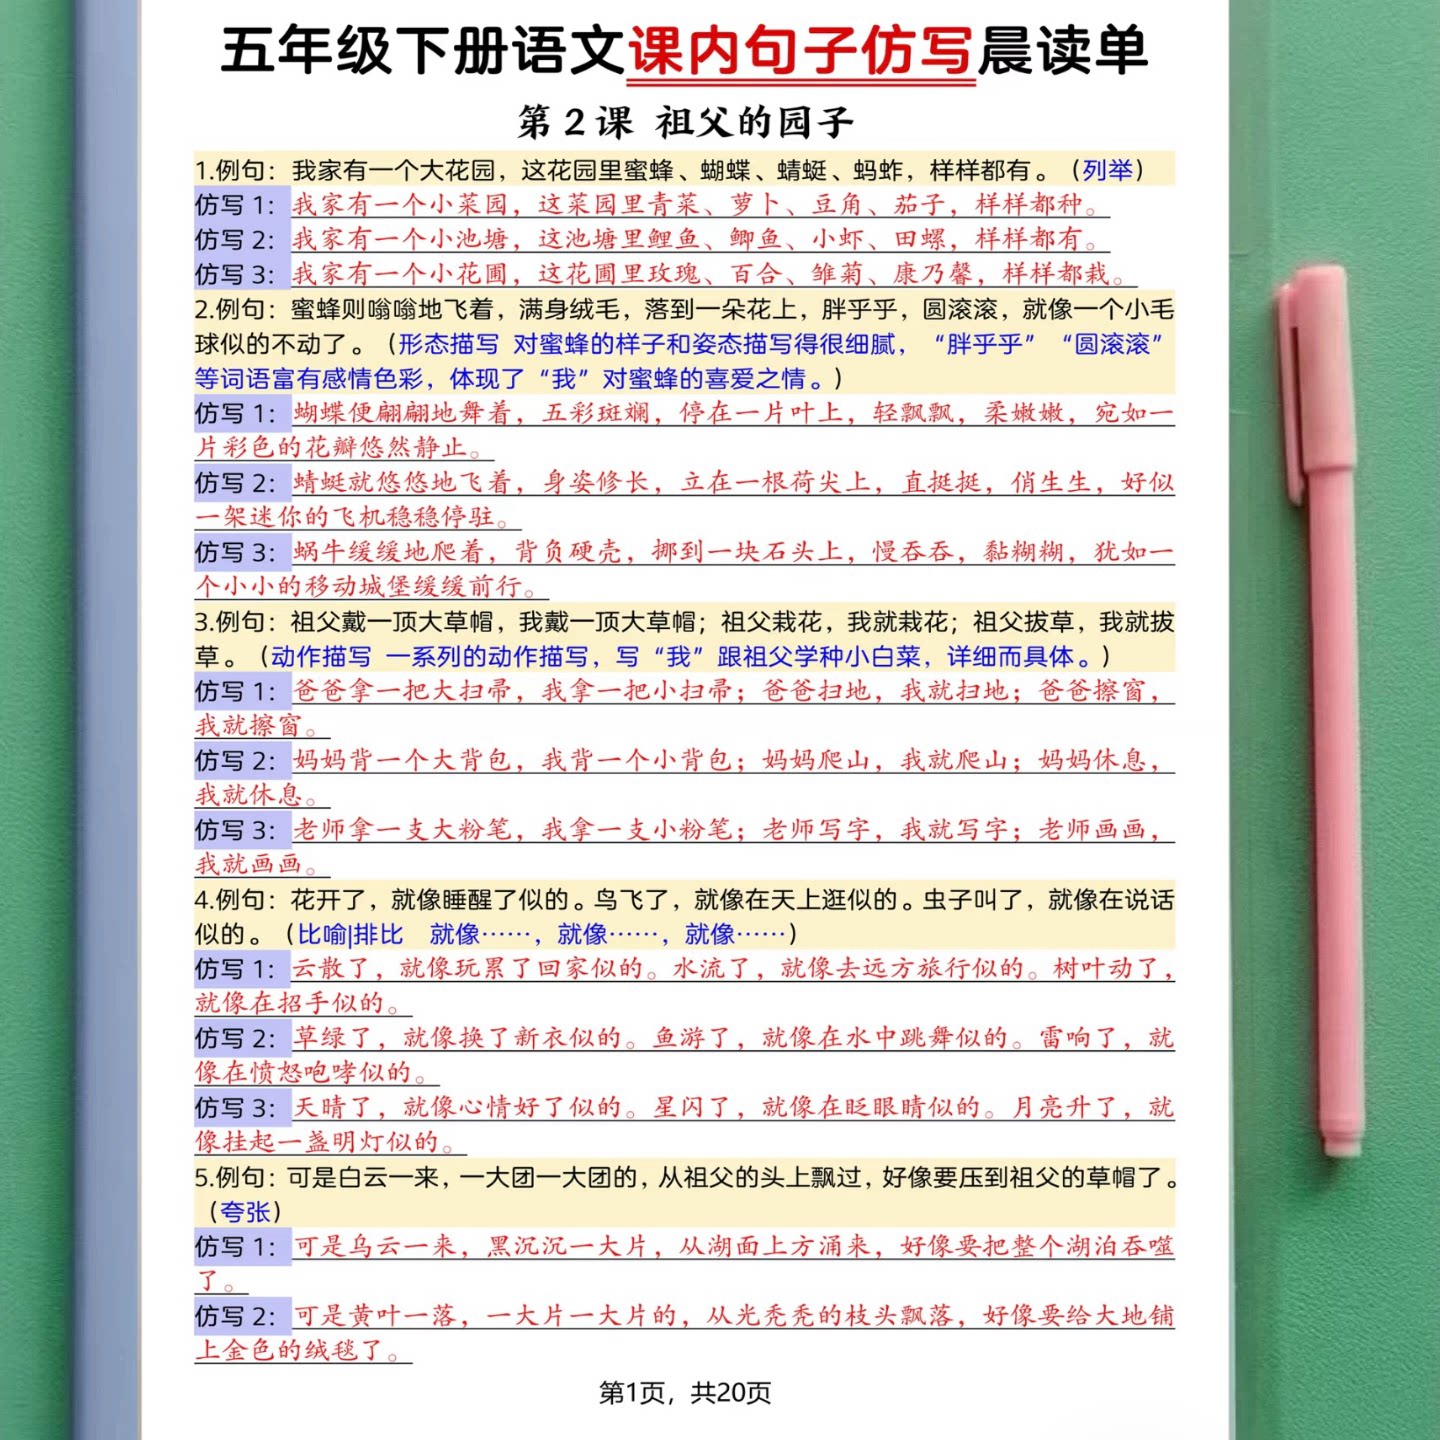 五年级下册语文课内句子仿写晨读单
第 2 课 祖父的园子
1.例句：我家有一个大花园，这花园里蜜蜂、蝴蝶、蜻蜓、蚂蚱，样样都有。（列举）
仿写 1：我家有一个小菜园，这菜园里青菜、萝卜、豆角、茄子，样样都种。
仿写 2：我家有一个小池塘，这池塘里鲤鱼、鲫鱼、小虾、田螺，样样都有。
仿写 3：我家有一个小花圃，这花圃里玫瑰、百合、雏菊、康乃馨，样样都栽。
2.例句：蜜蜂则嗡嗡地飞着，满身绒毛，落到一朵花上，胖乎乎，圆滚滚，就像一个小毛
球似的不动了。（形态描写 对蜜蜂的样子和姿态描写得很细腻，“胖乎乎”“圆滚滚”
等词语富有感情色彩，体现了“我”对蜜蜂的喜爱之情。）
仿写 1：蝴蝶便翩翩地舞着，五彩斑斓，停在一片叶上，轻飘飘，柔嫩嫩，宛如一
片彩色的花瓣悠然静止。
仿写 2：蜻蜓就悠悠地飞着，身姿修长，立在一根荷尖上，直挺挺，俏生生，好似
一架迷你的飞机稳稳停驻。
仿写 3：蜗牛缓缓地爬着，背负硬壳，挪到一块石头上，慢吞吞，黏糊糊，犹如一
个小小的移动城堡缓缓前行。
3.例句：祖父戴一顶大草帽，我戴一顶大草帽；祖父栽花，我就栽花；祖父拔草，我就拔
草。（动作描写 一系列的动作描写，写“我”跟祖父学种小白菜，详细而具体。）
仿写 1：爸爸拿一把大扫帚，我拿一把小扫帚；爸爸扫地，我就扫地；爸爸擦窗，
我就擦窗。
仿写 2：妈妈背一个大背包，我背一个小背包；妈妈爬山，我就爬山；妈妈休息，
我就休息。
仿写 3：老师拿一支大粉笔，我拿一支小粉笔；老师写字，我就写字；老师画画，
我就画画。
4.例句：花开了，就像睡醒了似的。鸟飞了，就像在天上逛似的。虫子叫了，就像在说话
似的。（比喻|排比 就像……，就像……，就像……）
仿写 1：云散了，就像玩累了回家似的。水流了，就像去远方旅行似的。树叶动了，
就像在招手似的。
仿写 2：草绿了，就像换了新衣似的。鱼游了，就像在水中跳舞似的。雷响了，就
像在愤怒咆哮似的。
仿写 3：天晴了，就像心情好了似的。星闪了，就像在眨眼睛似的。月亮升了，就
像挂起一盏明灯似的。
5.例句：可是白云一来，一大团一大团的，从祖父的头上飘过，好像要压到祖父的草帽了。
（夸张）
仿写 1：可是乌云一来，黑沉沉一大片，从湖面上方涌来，好像要把整个湖泊吞噬
了。
仿写 2：可是黄叶一落，一大片一大片的，从光秃秃的枝头飘落，好像要给大地铺
上金色的绒毯了。
第1页，共20页